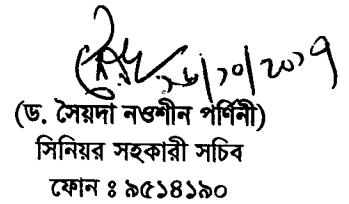 ২৬/১০/২০১৭
(ড. সৈয়দা নওশীন পর্ণিনী)
সিনিয়র সহকারী সচিব
ফোন ঃ ৯৫১৪১৯০